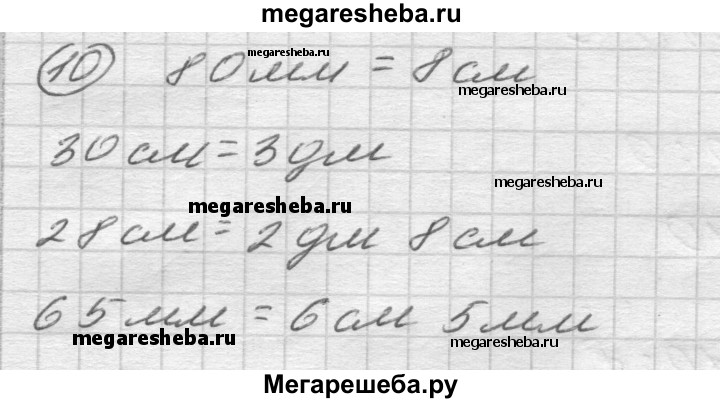 megaresheba.ru
megaresheba.ru
10 80 мм = 8 см
megaresheba.ru
30 см = 3 дм
megaresheba.ru
megaresheba.ru
28 см = 2 дм 8 см
65 мм = 6 см 5 мм
megaresheba.ru
megaresheba.ru
Мегарешеба.ру